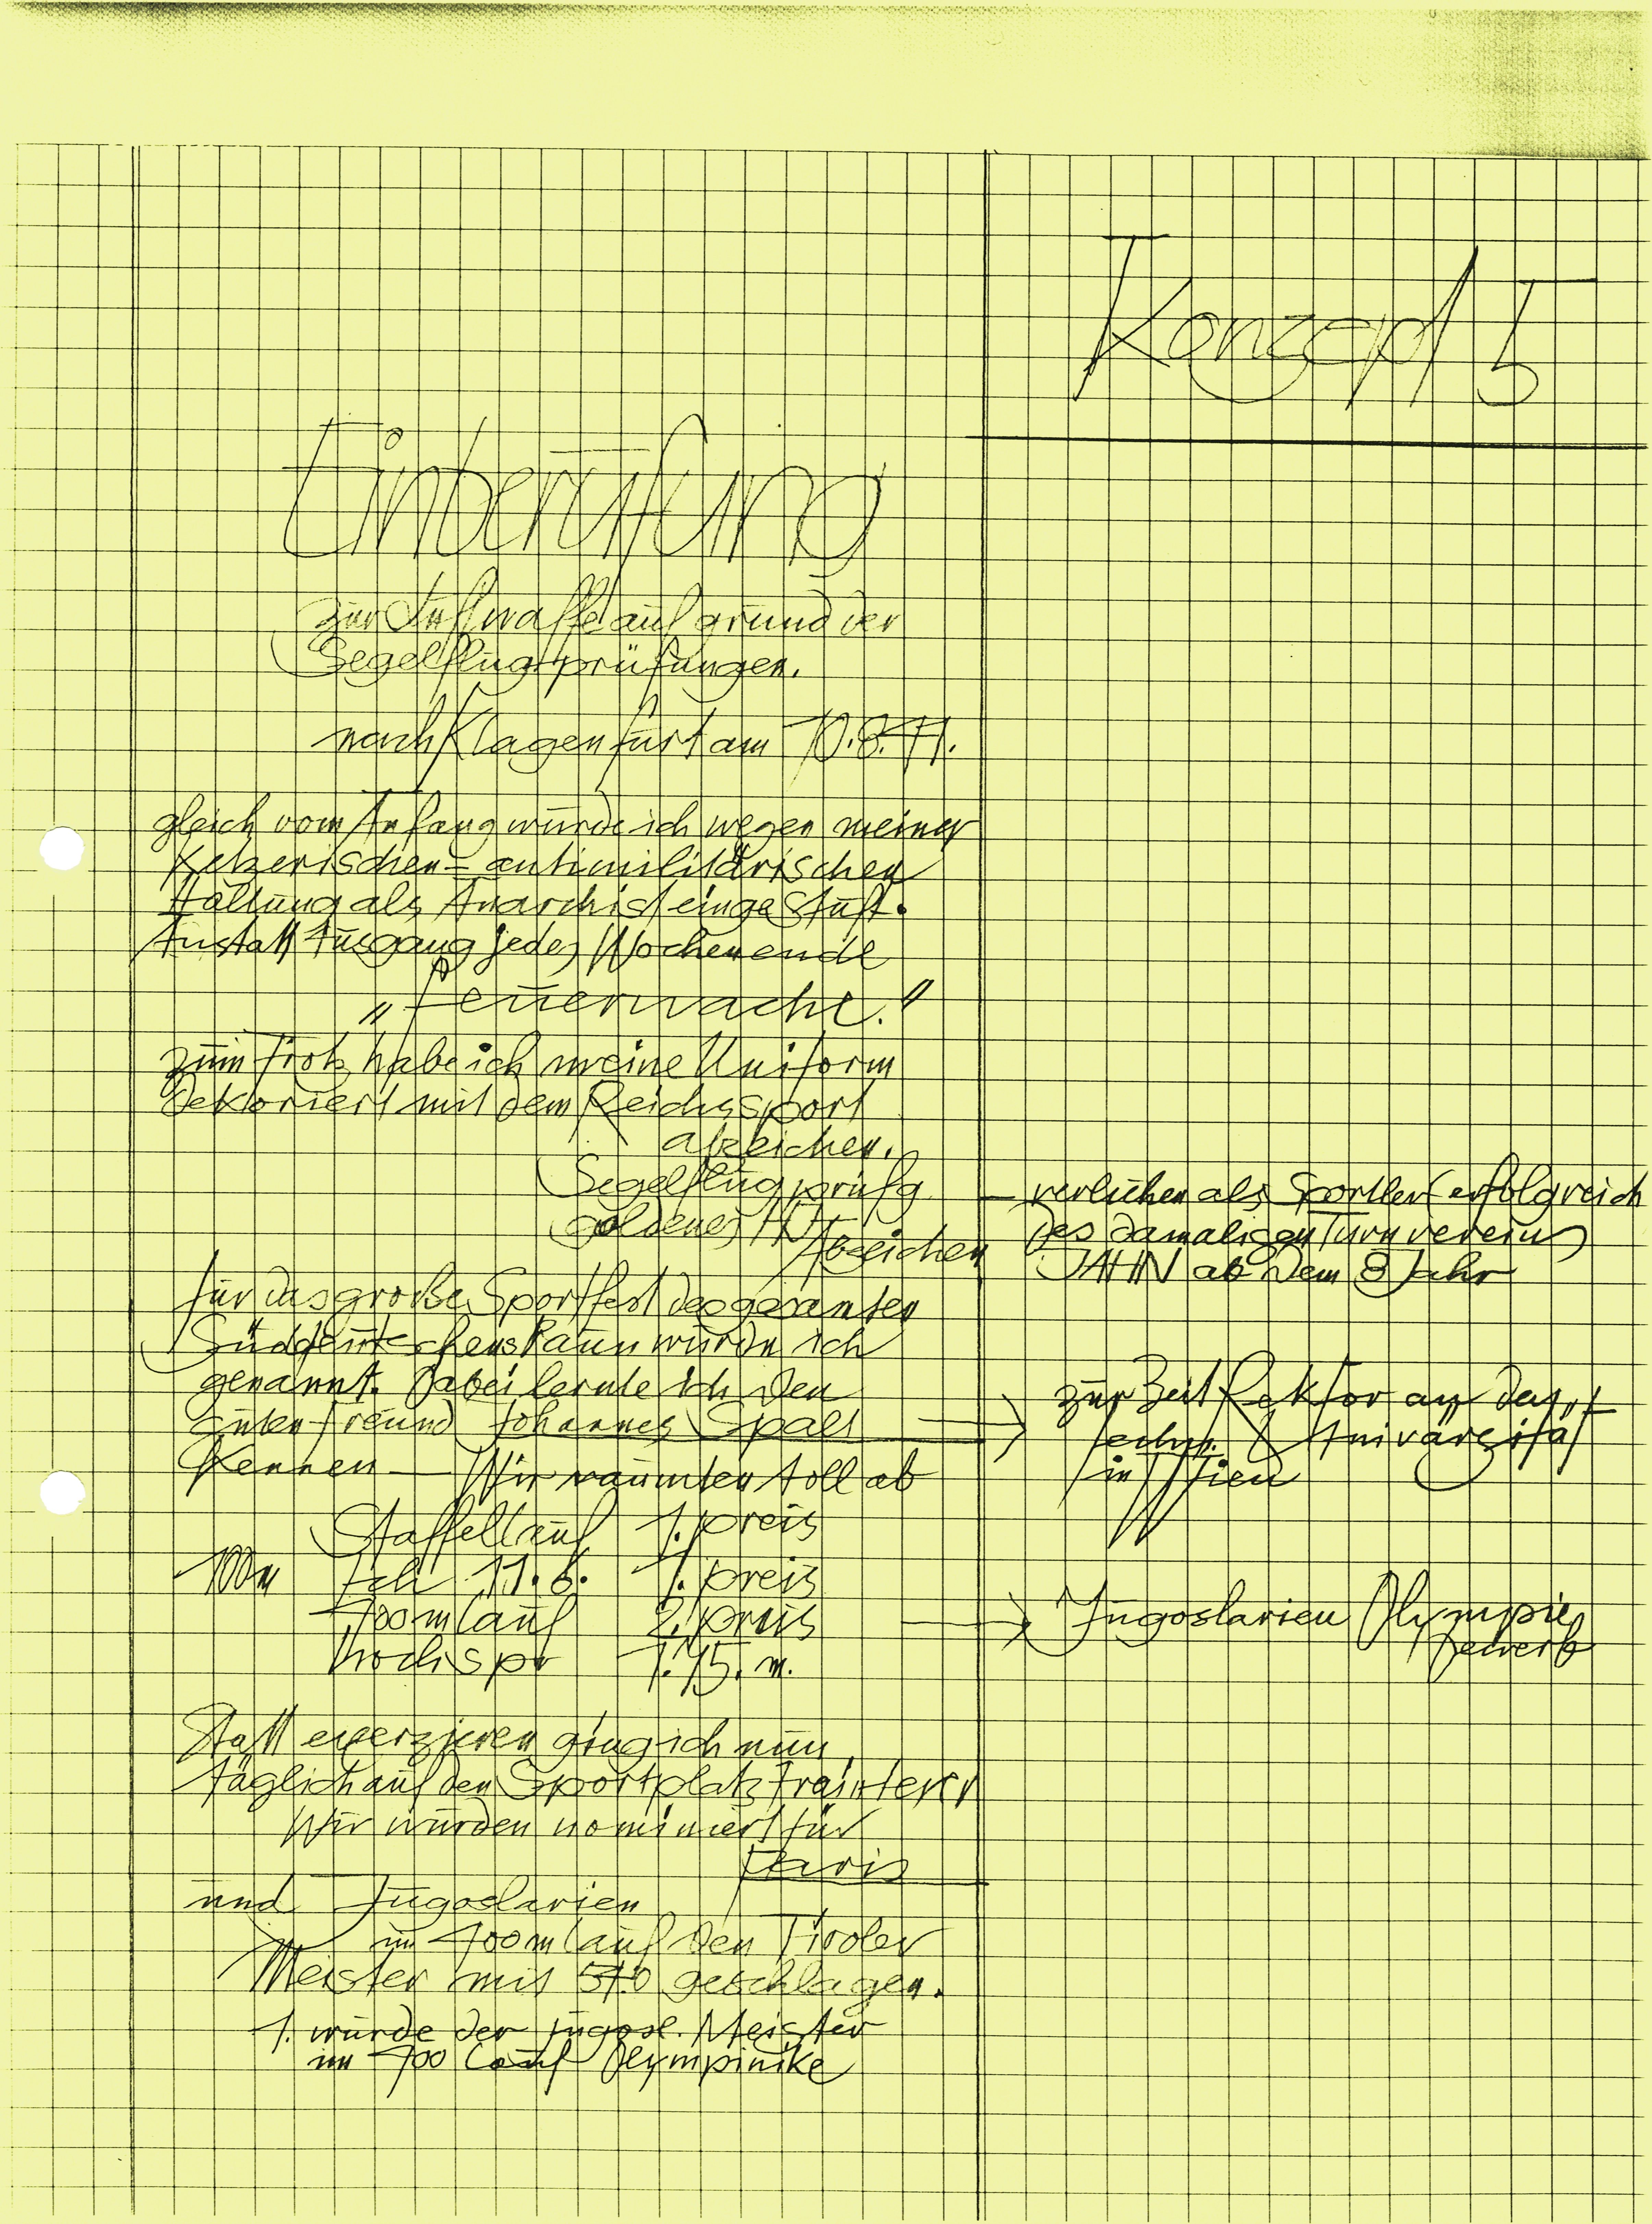 Konzept 5
Einberufung
zur Luftwaffe auf grund der
Segelflugprüfungen.
nach Klagenfurt am 10.8.41.
gleich vom Anfang wurde ich wegen meiner
ketzerischen = antimilitärischen
Haltung als Anarchist eingestuft.
Anstatt Ausgang jedes Wochenende
„Feuerwache."
zum Trotz habe ich meine Uniform
dekoriert mit dem Reichssport
abzeichen.
Segelflugprüfg
goldenes HJ
Abzeichen
— verliehen als Sportler (erfolgreich
des damaligen Turnvereins
JAHN ab dem 8 Jahr
für das große Sportfest des gesamten
Süddeutschens Raum wurde ich
genannt. Dabei lernte ich den
guten freund Johannes Spalt
kennen — Wir räumten toll ab
zur Zeit Rektor an der
techn. Univärsität
in Wien
Staffellauf 1. preis
100m Ich 11.6. 1. preis
400m lauf 2. preis
Hochspr 1.45. m.
Jugoslavien Olympie
bewerb
Statt exerzieren ging ich nun
täglich auf den Sportplatz trainieren
Wir wurden nominiert für
Paris
und Jugoslavien
im 400m lauf den Tiroler
Meister mit geschlagen.
1. wurde der jugosl. Meister
im 400 Lauf Olympinike